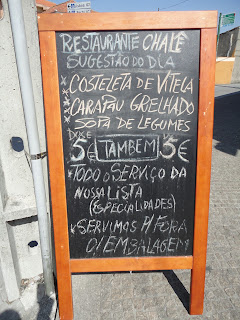 RESTAURANTE CHALÊ
SUGESTÃO DO DIA
* COSTELETA DE VITELA
* CARAPAU GRELHADO
* SOPA DE LEGUMES
5€ TAMBEM 5€
* TODO O SERVIÇO DA
NOSSA LISTA
(ESPECIALIDADES)
* SERVIMOS P/ FORA
C/ EMBALAGEM